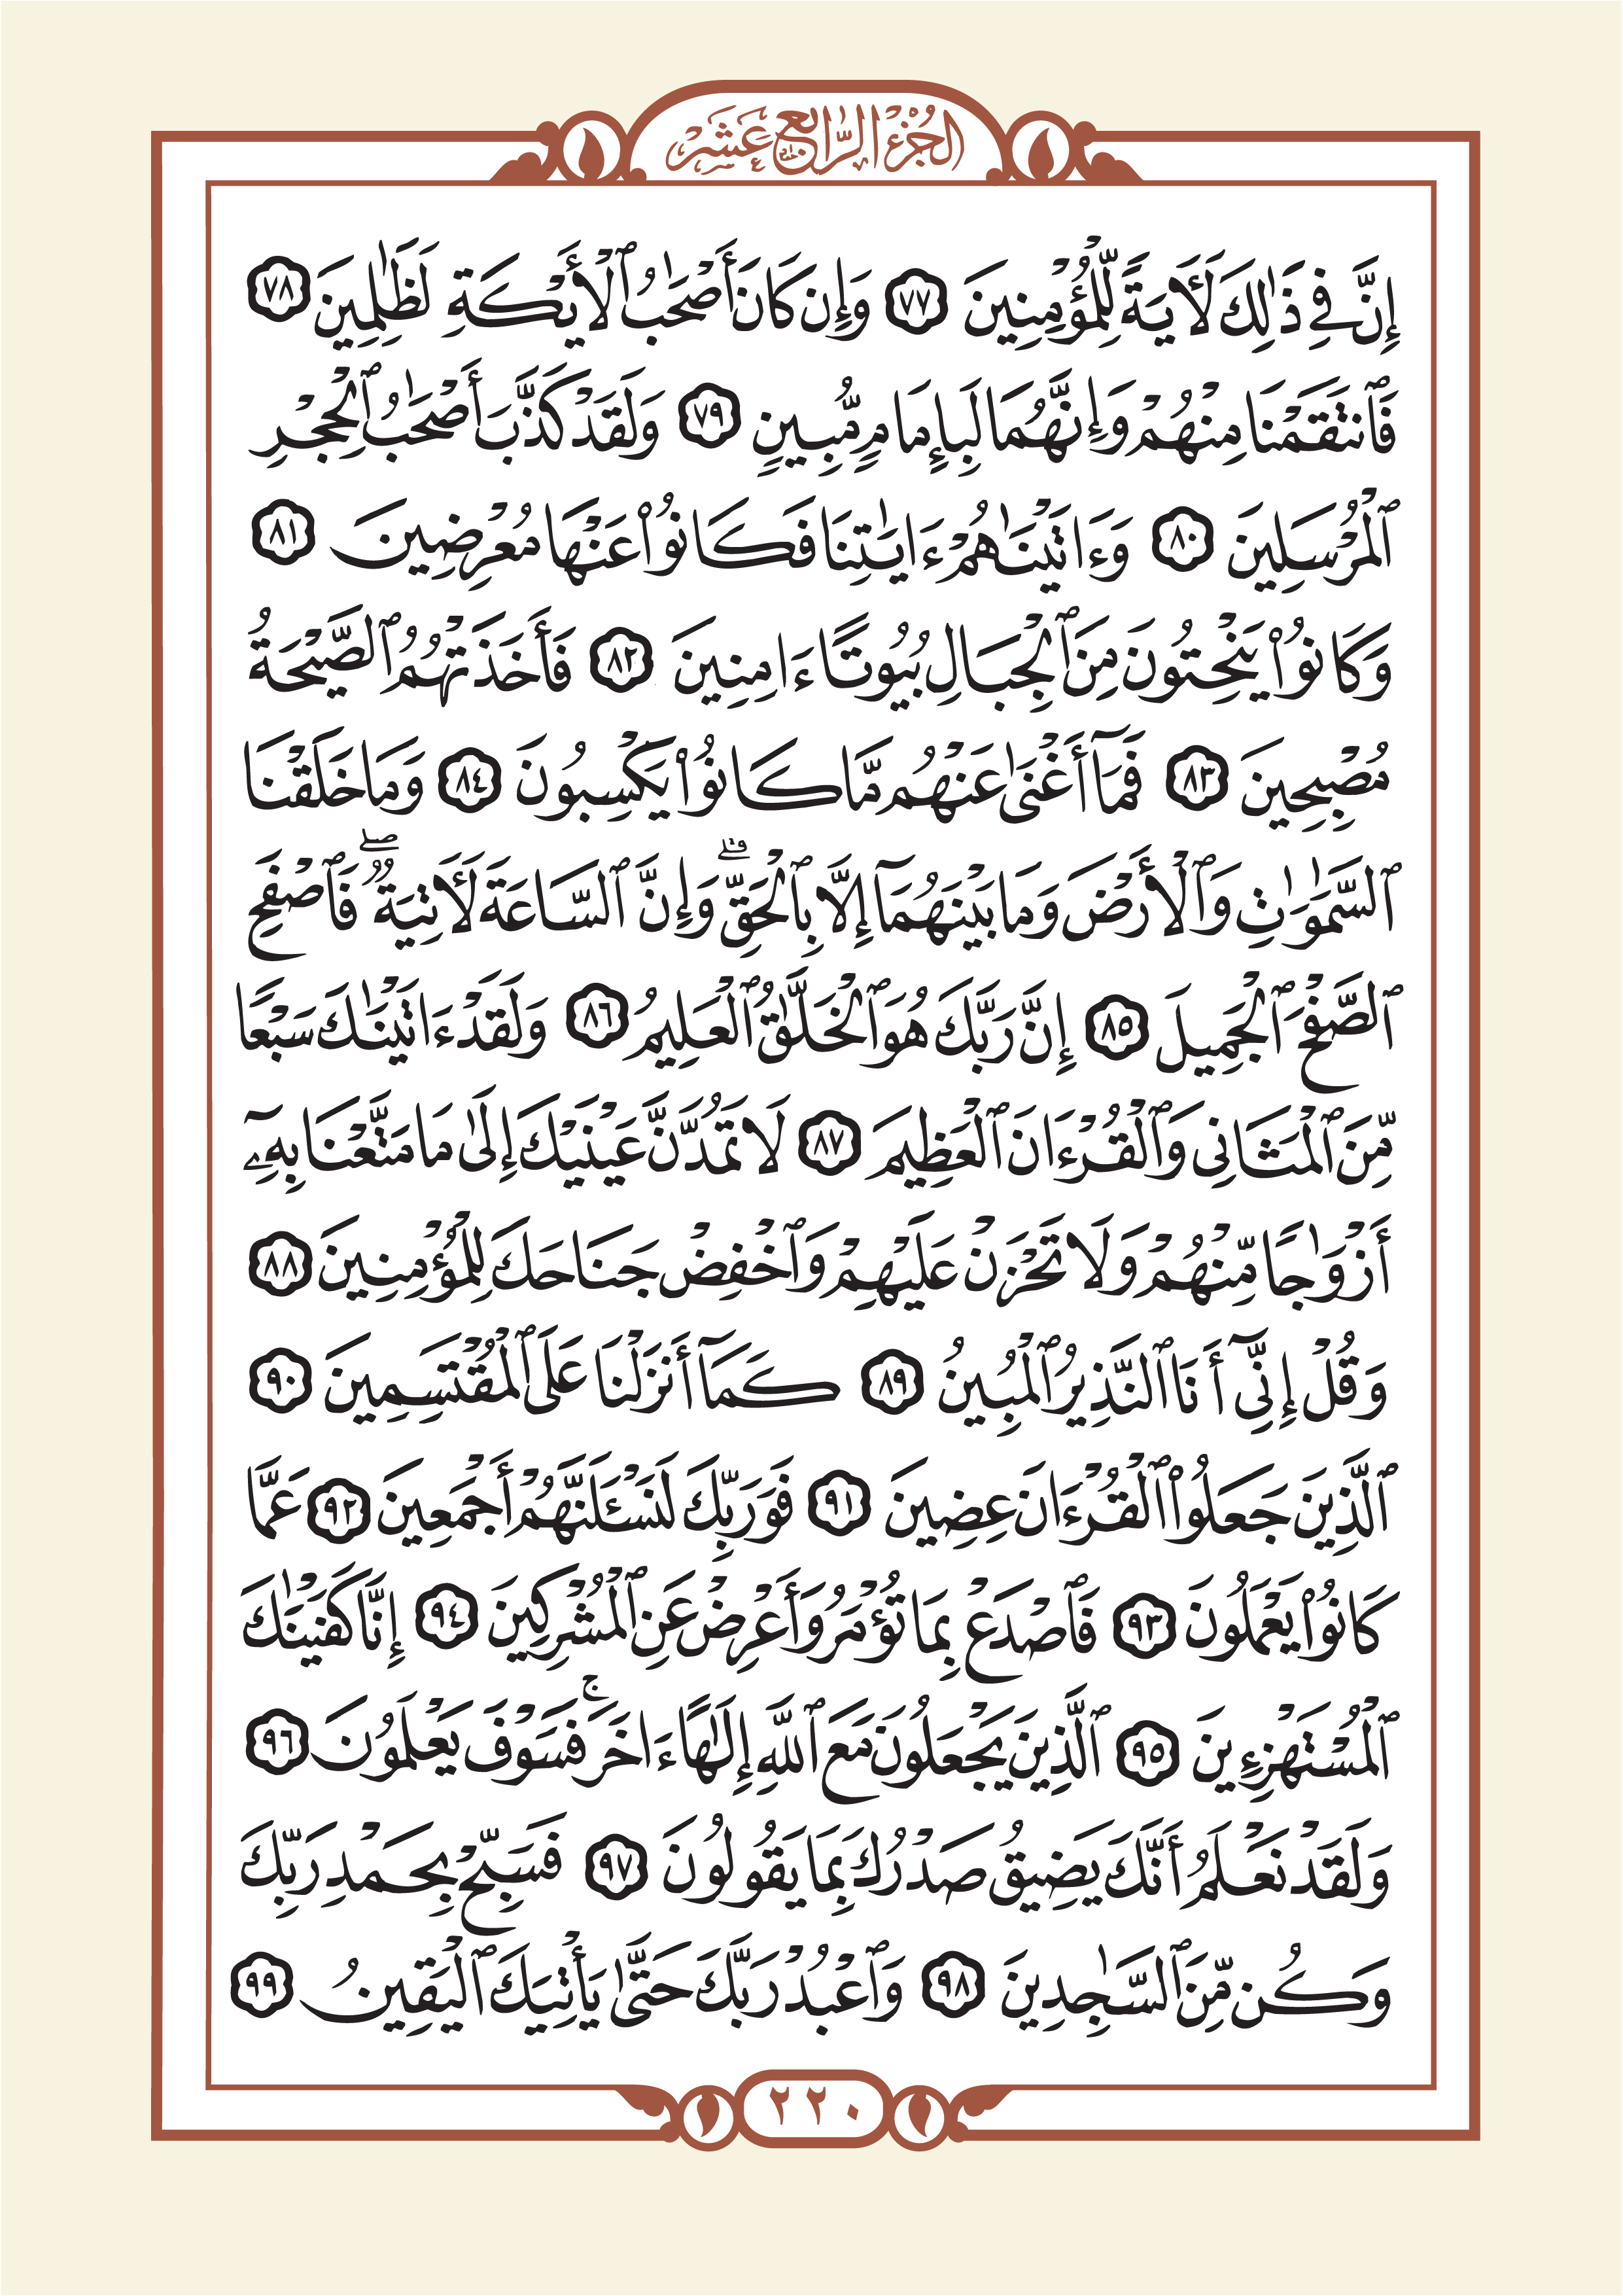 الجزء الرابع عشر
إِنَّ فِي ذَٰلِكَ لَأٓيَةً لِّلۡمُؤۡمِنِينَ ٧٧ وَإِن كَانَ أَصۡحَٰبُ ٱلۡأَيۡكَةِ لَظَٰلِمِينَ ٧٨
فَٱنتَقَمۡنَا مِنۡهُمۡ وَإِنَّهُمَا لَبِإِمَامٖ مُّبِينٖ ٧٩ وَلَقَدۡ كَذَّبَ أَصۡحَٰبُ ٱلۡحِجۡرِ
ٱلۡمُرۡسَلِينَ ٨٠ وَءَاتَيۡنَٰهُمۡ ءَايَٰتِنَا فَكَانُواْ عَنۡهَا مُعۡرِضِينَ ٨١
وَكَانُواْ يَنۡحِتُونَ مِنَ ٱلۡجِبَالِ بُيُوتًا ءَامِنِينَ ٨٢ فَأَخَذَتۡهُمُ ٱلصَّيۡحَةُ
مُصۡبِحِينَ ٨٣ فَمَآ أَغۡنَىٰ عَنۡهُم مَّا كَانُواْ يَكۡسِبُونَ ٨٤ وَمَا خَلَقۡنَا
ٱلسَّمَٰوَٰتِ وَٱلۡأَرۡضَ وَمَا بَيۡنَهُمَآ إِلَّا بِٱلۡحَقِّۗ وَإِنَّ ٱلسَّاعَةَ لَأٓتِيَةٞۖ فَٱصۡفَحِ
ٱلصَّفۡحَ ٱلۡجَمِيلَ ٨٥ إِنَّ رَبَّكَ هُوَ ٱلۡخَلَّٰقُ ٱلۡعَلِيمُ ٨٦ وَلَقَدۡ ءَاتَيۡنَٰكَ سَبۡعٗا
مِّنَ ٱلۡمَثَانِي وَٱلۡقُرۡءَانَ ٱلۡعَظِيمَ ٨٧ لَا تَمُدَّنَّ عَيۡنَيۡكَ إِلَىٰ مَا مَتَّعۡنَا بِهِۦٓ
أَزۡوَٰجٗا مِّنۡهُمۡ وَلَا تَحۡزَنۡ عَلَيۡهِمۡ وَٱخۡفِضۡ جَنَاحَكَ لِلۡمُؤۡمِنِينَ ٨٨
وَقُلۡ إِنِّيٓ أَنَا ٱلنَّذِيرُ ٱلۡمُبِينُ ٨٩ كَمَآ أَنزَلۡنَا عَلَى ٱلۡمُقۡتَسِمِينَ ٩٠
ٱلَّذِينَ جَعَلُواْ ٱلۡقُرۡءَانَ عِضِينَ ٩١ فَوَرَبِّكَ لَنَسۡـَٔلَنَّهُمۡ أَجۡمَعِينَ ٩٢ عَمَّا
كَانُواْ يَعۡمَلُونَ ٩٣ فَٱصۡدَعۡ بِمَا تُؤۡمَرُ وَأَعۡرِضۡ عَنِ ٱلۡمُشۡرِكِينَ ٩٤ إِنَّا كَفَيۡنَٰكَ
ٱلۡمُسۡتَهۡزِءِينَ ٩٥ ٱلَّذِينَ يَجۡعَلُونَ مَعَ ٱللَّهِ إِلَٰهًا ءَاخَرَۚ فَسَوۡفَ يَعۡلَمُونَ ٩٦
وَلَقَدۡ نَعۡلَمُ أَنَّكَ يَضِيقُ صَدۡرُكَ بِمَا يَقُولُونَ ٩٧ فَسَبِّحۡ بِحَمۡدِ رَبِّكَ
وَكُن مِّنَ ٱلسَّٰجِدِينَ ٩٨ وَٱعۡبُدۡ رَبَّكَ حَتَّىٰ يَأۡتِيَكَ ٱلۡيَقِينُ ٩٩
٢٢٠